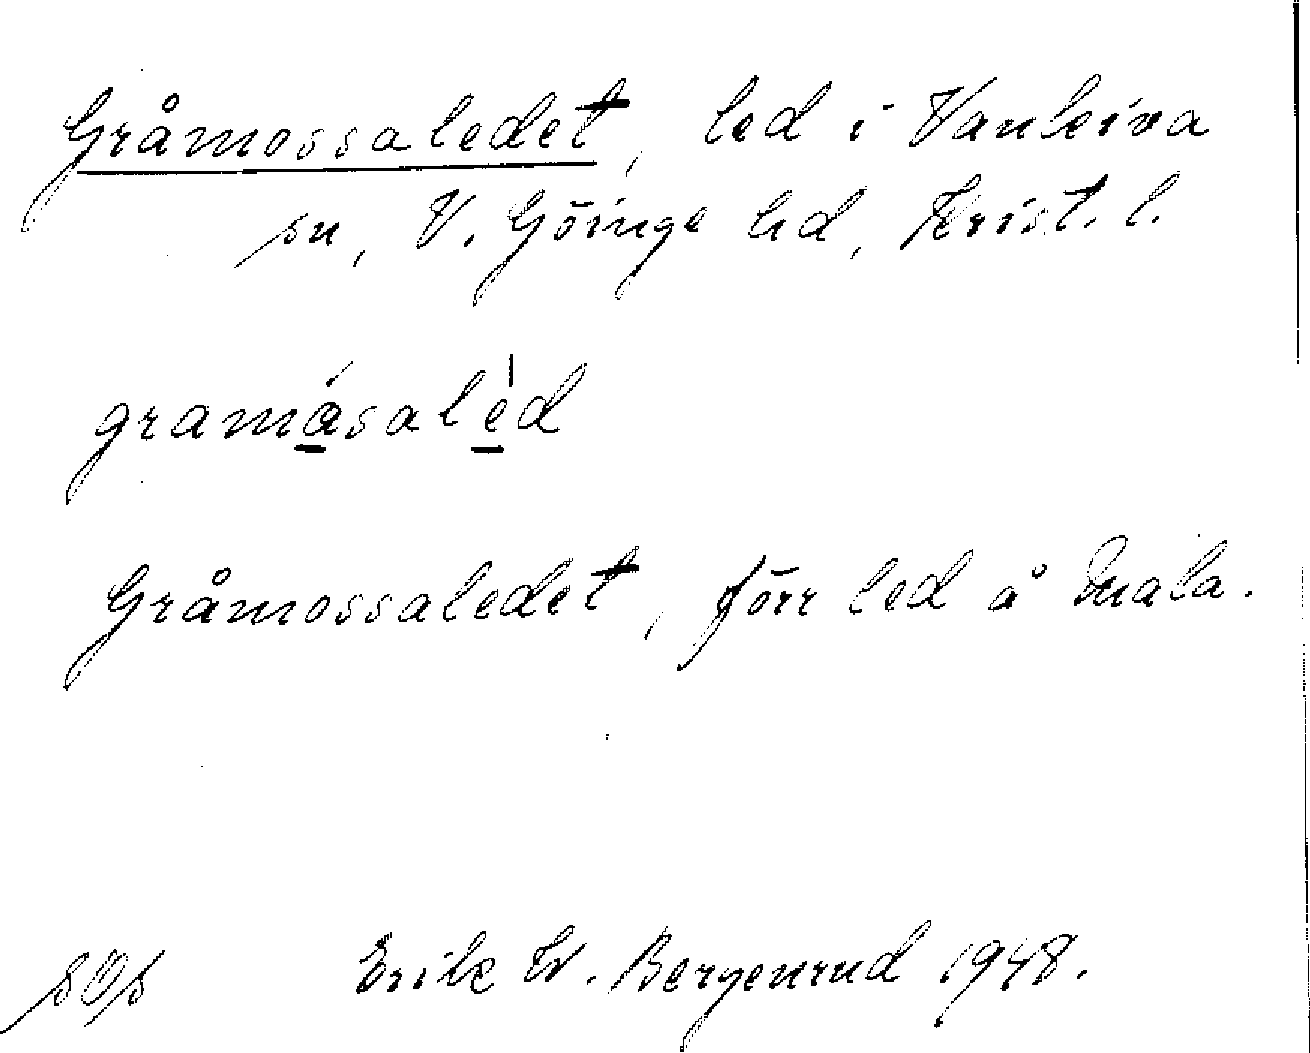 Gråmossaledet, led i Vankiva
sn, V. Göinge hd, Krist. l.
gramåsaled
Gråmossaledet, förr led å Mala.
Erik W. Bergenrud 1948.